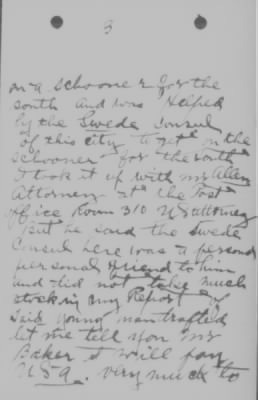 3
on a schooner for the
south and was Helped
by the Swede Consul
of this city to get on the
schooner for the south
I took it up with mr Allen
Attorney at the Post
office Room 310 US attorney
But he said the Swede
Consul here was a personal
personal friend to him
and did not take much
stock in my Report of
said young man trafted
let me tell you mr
Baker it will pay
USA. very much to